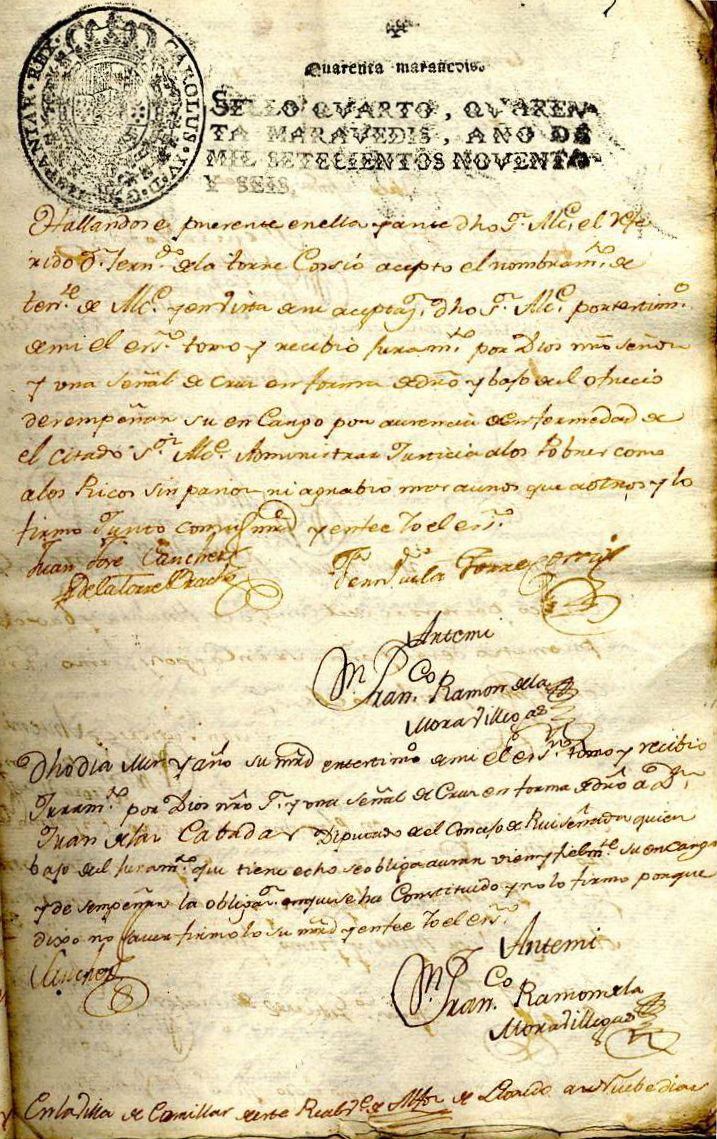 HISPANIAR. REX. CAROLUS. IV. D. G.
Quarenta maravedis.
SELLO QVARTO, QVAREN-
TA MARAVEDIS, AÑO DE
MIL SETECIENTOS NOVENTA
Y SEIS.
Hallandose presente en ella y ante dho Sr. Alce. el refe
rido Dn. Ferndo. de la torre Corsio acepto el nombramto. de
tente. de Alce. y en vista de su aceptazn. dho Sr. Alce. por testimo.
de mi el essno. tomo y recibio Juramto. por Dios nro señor
y una señal de Cruz en forma de dro y bajo de el ofrecio
desempeñar su encargo por ausencia o enfermedad de
el citado Sor. Alce. Administrar Justicia a los Pobres como
a los Ricos sin pasion ni agrabio mas a unos que a otros y lo
firmo Junto con su mrd y en fee Yo el essno.
Juan Jose Sanchez
de la Torre
Fernando de la Torre Corsio
Antemi
Franco. Ramon de la
Moradillo
Dho dia mes y año su mrd en testimo. de mi el essno. tomo y recibio
Juramto. por Dios nro Sr. y una señal de Cruz en forma de dro a Dn.
Juan de las Cabadas Diputado de el Concejo de Ruiseñada quien
bajo de el Juramto. que tiene echo se obliga a usar vien y fielmte. su encargo
y desempeñar la obligazn. en que se ha Constituido y no lo firmo porque
dixo no saver firmolo su mrd y en fee Yo el essno.
Sanchez
Antemi
Franco. Ramon de la
Moradillo
En la Villa de Comillas de este Real Vce. de Alfoz de Lloredo a nuebe dias